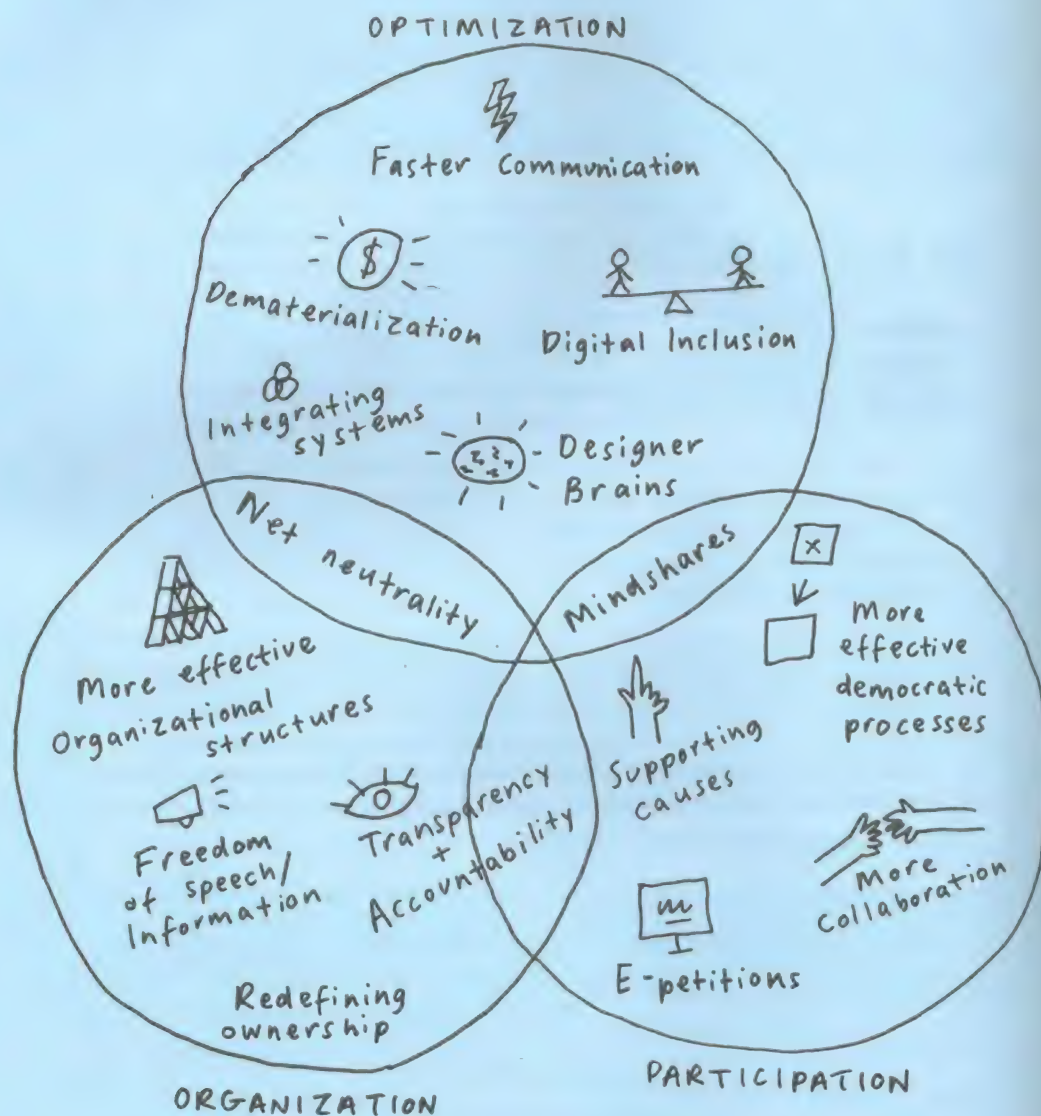 OPTIMIZATION
Faster Communication
$
Dematerialization
Digital Inclusion
Integrating
systems
Designer
Brains
Net neutrality
Mindshares
x
More
effective
democratic
processes
More effective
Organizational
structures
Supporting
causes
Freedom
of speech/
Information
Transparency
+
Accountability
More
collaboration
E-petitions
Redefining
ownership
ORGANIZATION
PARTICIPATION